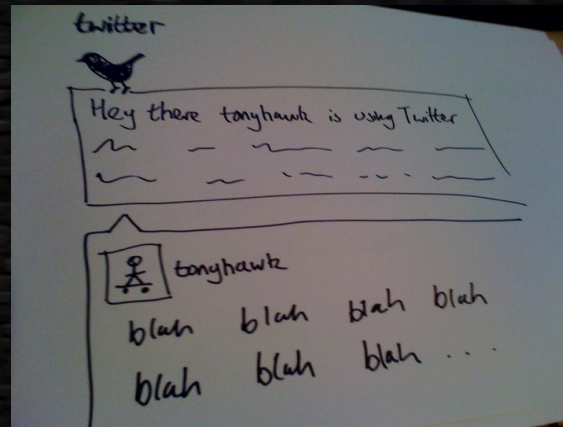 twitter
Hey there tonyhawk is using Twitter
tonyhawk
blah blah blah blah
blah blah blah ....